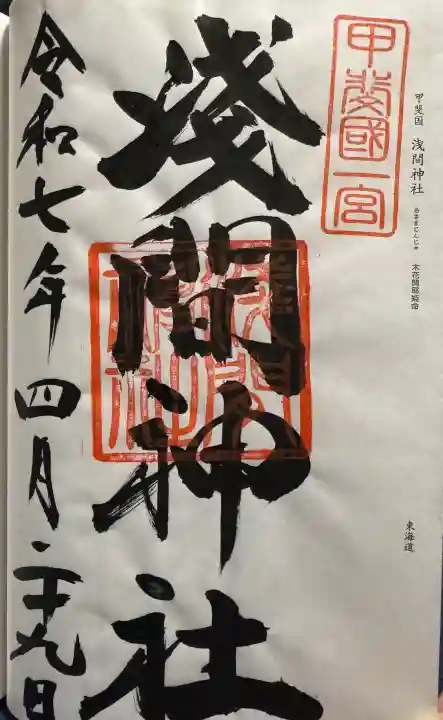 甲斐國一宮
甲斐国 浅間神社 あさまじんじゃ 木花開耶姫命
東海道
浅間神社
令和七年四月二十九日